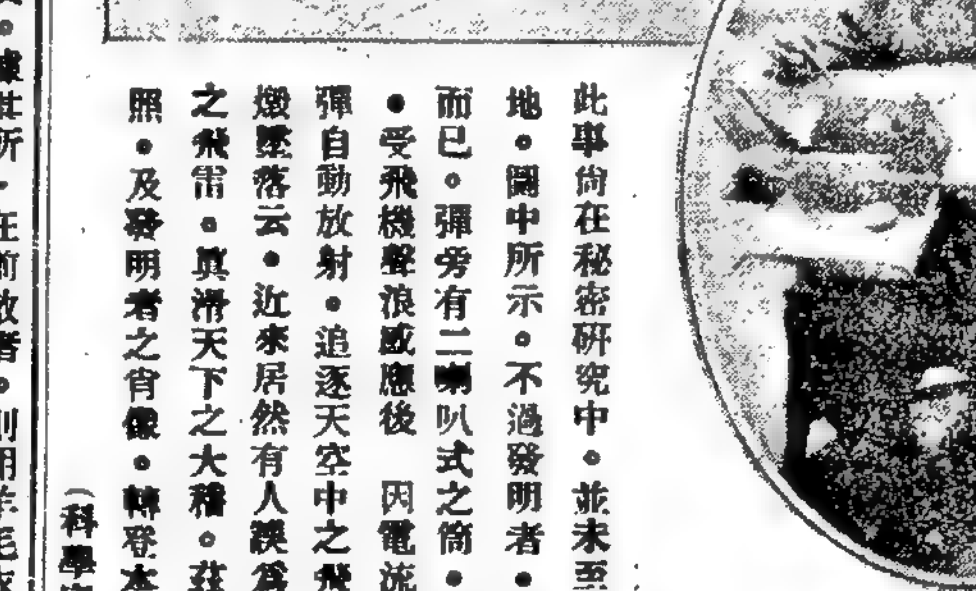 此事尙在秘密硏究中。並未至
地。圖中所示。不過發明者。
而已。彈旁有二喇叭式之筒。
。受飛機聲浪感應後 因電流
彈自動放射。追逐天空中之飛
燬墜落云。近來居然有人誤爲
之飛雷。眞滑天下之大稽。茲
照。及發明者之肖像。轉登本
(科學
所.在前敵者。則用羊毛